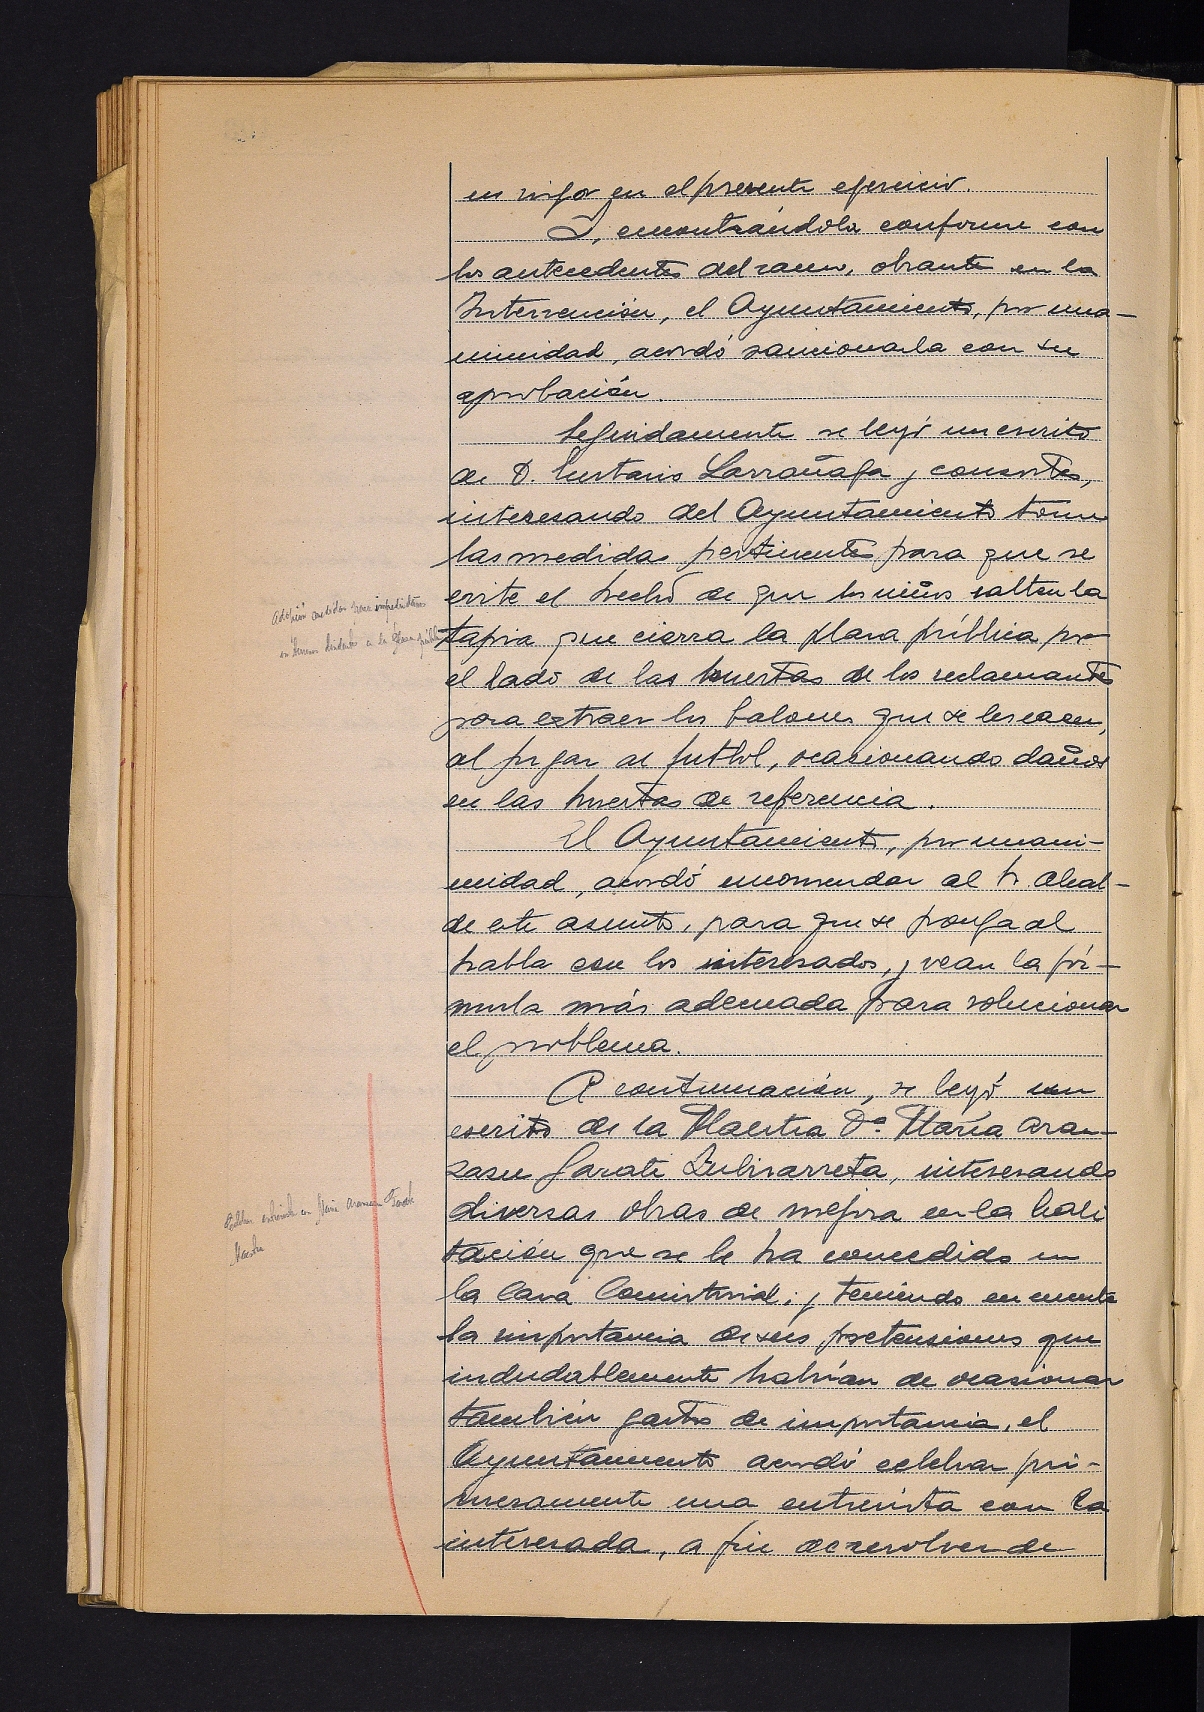 en vigor en el presente ejercicio.
Y, encontrándola conforme con
los antecedentes del ramo, obrante en la
Intervención, el Ayuntamiento, por una-
nimidad, acordó sancionarla con su
aprobación.
Seguidamente se leyó un escrito
de D. Eustasio Larrañaga y consortes,
interesando del Ayuntamiento tome
las medidas pertinentes para que se
evite el hecho de que los niños salten la
tapia que cierra la plaza pública por
el lado de las huertas de los reclamantes
para extraer los balones que se les caen,
al jugar al futbol, ocasionando daños
en las huertas de referencia.
El Ayuntamiento, por unani-
midad, acordó encomendar al Sr. Alcal-
de este asunto, para que se ponga al
habla con los interesados, y vean la fór-
mula más adecuada para solucionar
el problema.
A continuación, se leyó un
escrito de la Maestra Dª. María Aran-
zasu Garate Zubizarreta, interesando
diversas obras de mejora en la habi
tación que se le ha concedido en
la Casa Consistorial; y teniendo en cuenta
la importancia de sus pretensiones que
indudablemente habrían de ocasionar
también gastos de importancia, el
Ayuntamiento acordó celebrar pri-
meramente una entrevista con la
interesada, a fin de resolver de
Adopción medidas para
en terrenos lindantes a la plaza pública
Celebrar entrevista con María Aranzazu Garate
Maestra